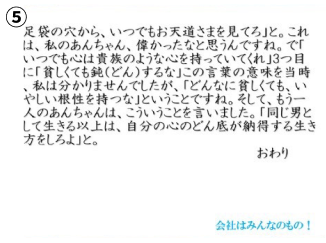 ⑤
足袋の穴から、いつでもお天道さまを見てろ」と。これ
は、私のあんちゃん、偉かったなと思うんですね。で「
いつでも心は貴族のような心を持っていてくれ」3つ目
に「貧しくても鈍(どん)するな」この言葉の意味を当時
、私は分かりませんでしたが、「どんなに貧しくても、い
やしい根性を持つな」ということですね。そして、もう一
人のあんちゃんは、こういうことを言いました。「同じ男と
して生きる以上は、自分の心のどん底が納得する生き
方をしろよ」と。
おわり
会社はみんなのもの！